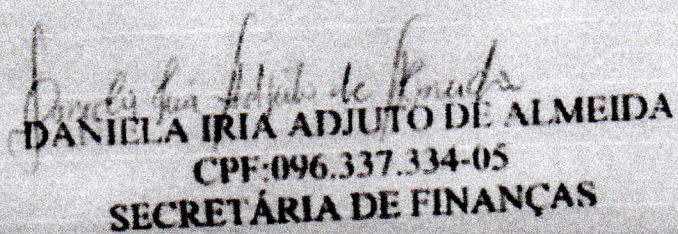 Daniela Iria Adjuto de Almeida
DANIELA IRIA ADJUTO DE ALMEIDA
CPF:096.337.334-05
SECRETÁRIA DE FINANÇAS